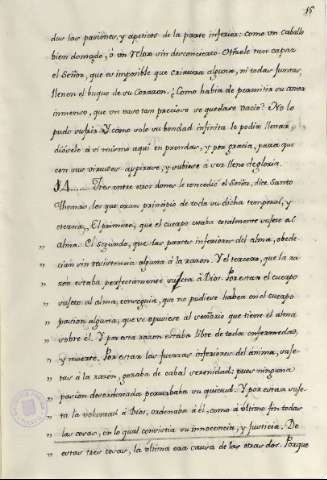 15
das las pasiónes, y apetitos de la parte inferiór: como un caballo
bien domado, ó un Relox sin desconcierto. Hízole tan capaz
el Señor, que es imposible que criatura alguna, ni todas juntas,
llenen el buque de su Corazon. ¿Como habia de permitir su amor
inmenso, que un vaso tan precioso se quedase vacío? No lo
pudo sufrir. Y como solo su bondad infinita le podia llenar,
dióselo á sí mismo aqui en prendas, y por gracia, para que
con sus virtudes aspirase, y subiese á ser lleno de gloria.
14. Tres entre otros dones le concedió el Señor, dice Santo
Thomás, los que eran principio de toda su dicha temporal, y
eterna. El primero, que el cuerpo estaba totalmente sujeto al
„ alma. El segundo, que las partes inferiores del alma, obede-
„ cian sin resistencia alguna á la razon. Y el tercero, que la ra-
„ zon estaba perfectamente sujeta á Dios. Por estar el cuerpo
„ sujeto al alma, conseguia, que no pudiese haber en el cuerpo
„ pasion alguna, que se opusiese al señorío que tiene el alma
„ sobre él. Y por esta razon estaba libre de todas enfermedades,
„ y muerte. Por estar las fuerzas inferiores del ánima, suje-
„ tas á la razon, gozaba de cabal serenidad: pues ninguna
„ pasion desordenada perturbaba su quietud. Y por estar suje-
„ ta la voluntad á Dios, ordenaba á él, como á último fin todas
„ las cosas, en lo qual consistia su innocencia, y justicia. De
„ estas tres cosas, la última era causa de las otras dos. Porque